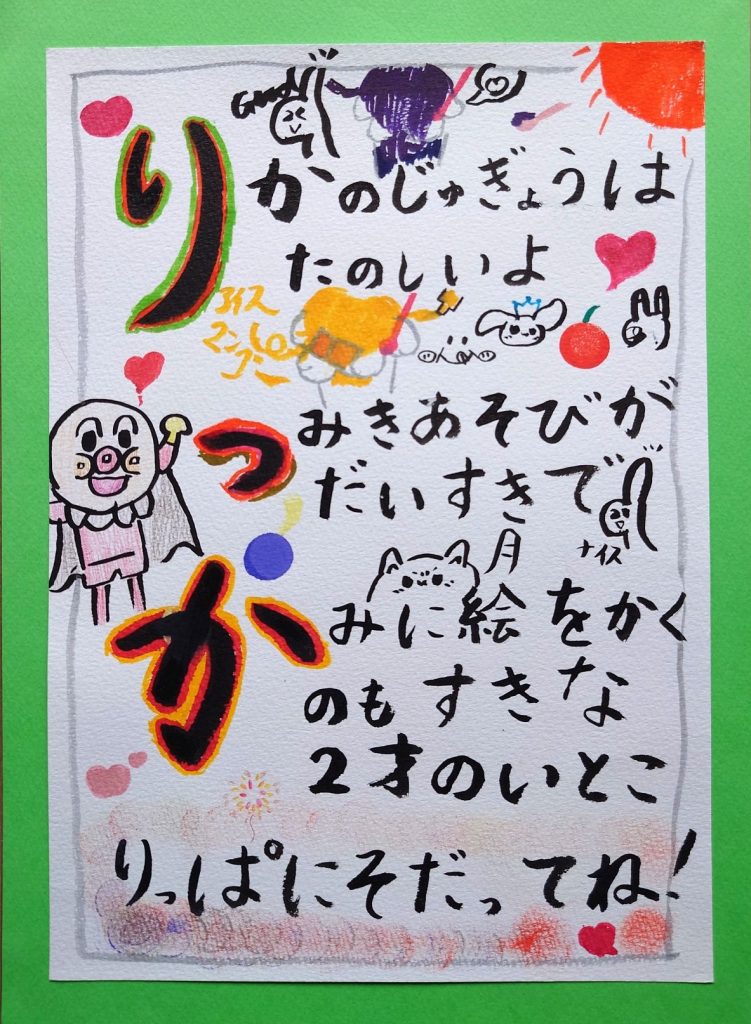 Good
りかのじゅぎょうは
たのしいよ
アイス
っみきあそびが
だいすきで
ナイス
月
かみに絵をかく
のもすきな
2才のいとこ
りっぱにそだってね!